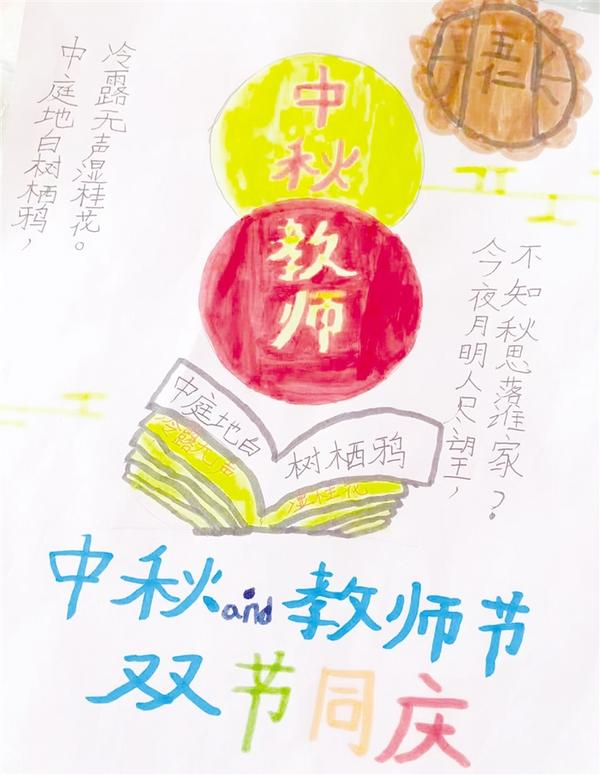 中庭地白树栖鸦，
冷露无声湿桂花。
中秋
教师
五仁
今夜月明人尽望，
不知秋思落谁家？
中庭地白
树栖鸦
冷露无声
湿桂花
中秋and教师节
双节同庆